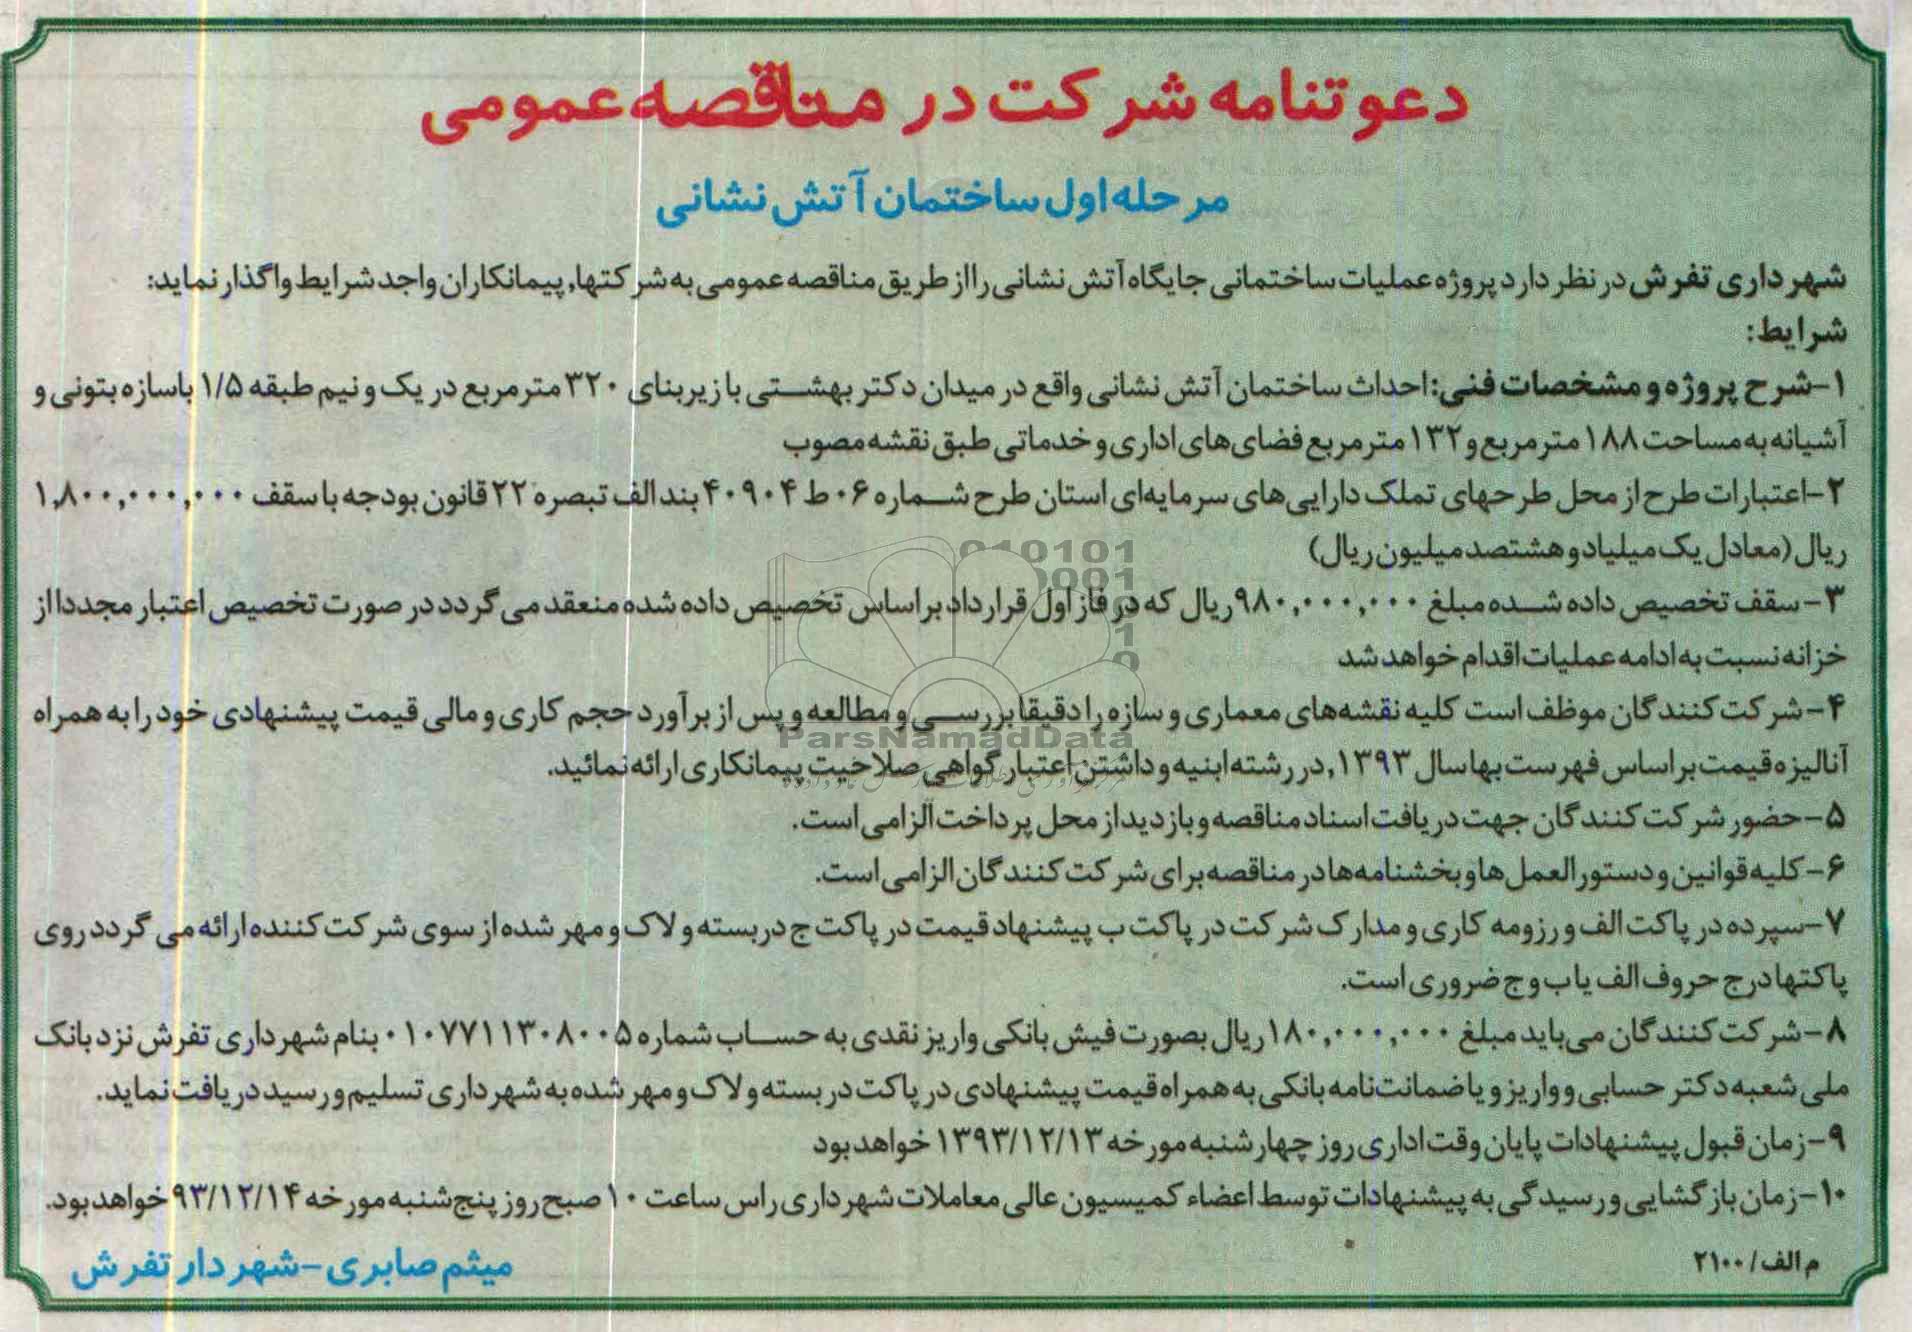 دعوتنامه شرکت در مناقصه عمومی
مرحله اول ساختمان آتش نشانی
شهرداری تفرش در نظر دارد پروژه عملیات ساختمانی جایگاه آتش نشانی را از طریق مناقصه عمومی به شرکتها, پیمانکاران واجد شرایط واگذار نماید:
شرایط:
۱-شرح پروژه و مشخصات فنی: احداث ساختمان آتش نشانی واقع در میدان دکتر بهشتی با زیربنای ۳۲۰ مترمربع در یک و نیم طبقه ۱/۵ باسازه بتونی و
آشیانه به مساحت ۱۸۸ مترمربع و ۱۳۲ مترمربع فضای های اداری و خدماتی طبق نقشه مصوب
۲-اعتبارات طرح از محل طرحهای تملک دارایی های سرمایه‌ای استان طرح شماره ۰۶ ط ۴۰۹۰۴ بند الف تبصره ۲۲ قانون بودجه با سقف ۱,۸۰۰,۰۰۰,۰۰۰
ریال (معادل یک میلیاد و هشتصد میلیون ریال)
۳-سقف تخصیص داده شده مبلغ ۹۸۰,۰۰۰,۰۰۰ ریال که در فاز اول قرارداد براساس تخصیص داده شده منعقد می گردد در صورت تخصیص اعتبار مجددا از
خزانه نسبت به ادامه عملیات اقدام خواهد شد
۴-شرکت کنندگان موظف است کلیه نقشه‌های معماری و سازه را دقیقا بررسی و مطالعه و پس از برآورد حجم کاری و مالی قیمت پیشنهادی خود را به همراه
آنالیزه قیمت براساس فهرست بها سال ۱۳۹۳, در رشته ابنیه و داشتن اعتبار گواهی صلاحیت پیمانکاری ارائه نمائید.
۵-حضور شرکت کنندگان جهت دریافت اسناد مناقصه و بازدید از محل پرداخت الزامی است.
۶-کلیه قوانین و دستورالعمل ها و بخشنامه ها در مناقصه برای شرکت کنندگان الزامی است.
۷-سپرده در پاکت الف و رزومه کاری و مدارک شرکت در پاکت ب پیشنهاد قیمت در پاکت ج دربسته و لاک و مهر شده از سوی شرکت کننده ارائه می گردد روی
پاکتها درج حروف الف یا ب و ج ضروری است.
۸-شرکت کنندگان می‌باید مبلغ ۱۸۰,۰۰۰,۰۰۰ ریال بصورت فیش بانکی واریز نقدی به حساب شماره ۰۱۰۷۷۱۱۳۰۸۰۰۵ بنام شهرداری تفرش نزد بانک
ملی شعبه دکتر حسابی و واریز و یا ضمانت نامه بانکی به همراه قیمت پیشنهادی در پاکت در بسته و لاک و مهر شده به شهرداری تسلیم و رسید دریافت نماید.
۹-زمان قبول پیشنهادات پایان وقت اداری روز چهارشنبه مورخه ۱۳۹۳/۱۲/۱۳ خواهد بود
۱۰-زمان بازگشایی و رسیدگی به پیشنهادات توسط اعضاء کمیسیون عالی معاملات شهرداری راس ساعت ۱۰ صبح روز پنج شنبه مورخه ۹۳/۱۲/۱۴ خواهد بود.
م الف/۲۱۰۰
میثم صابری-شهردار تفرش
ParsNamadData